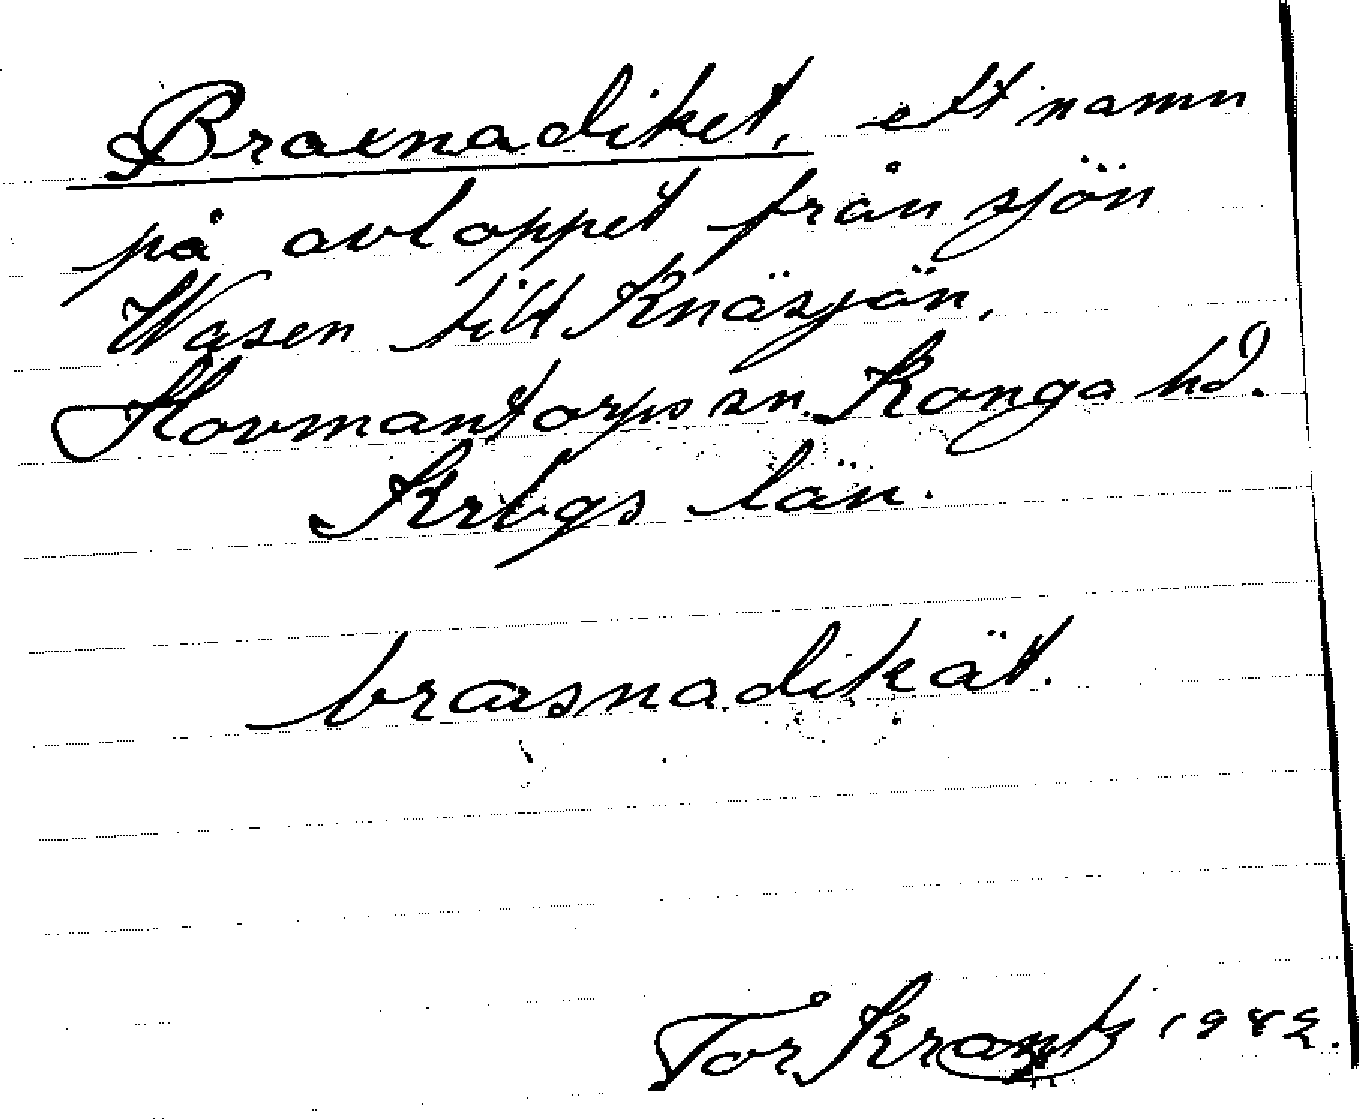 Braxnadiket, ett namn
på avloppet från sjön
Wasen till Knäsjön,
Hovmantorps sn. Konga hd.
Krbgs län.
braxsnadikät.
Tor Krantz 1982.